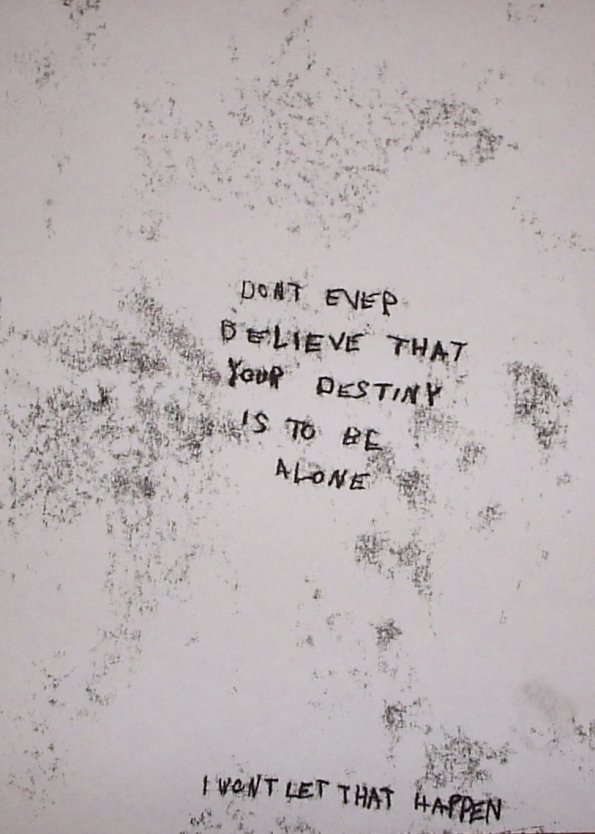 DONT EVER
BELIEVE THAT
YOUR DESTINY
IS TO BE
ALONE
I WONT LET THAT HAPPEN